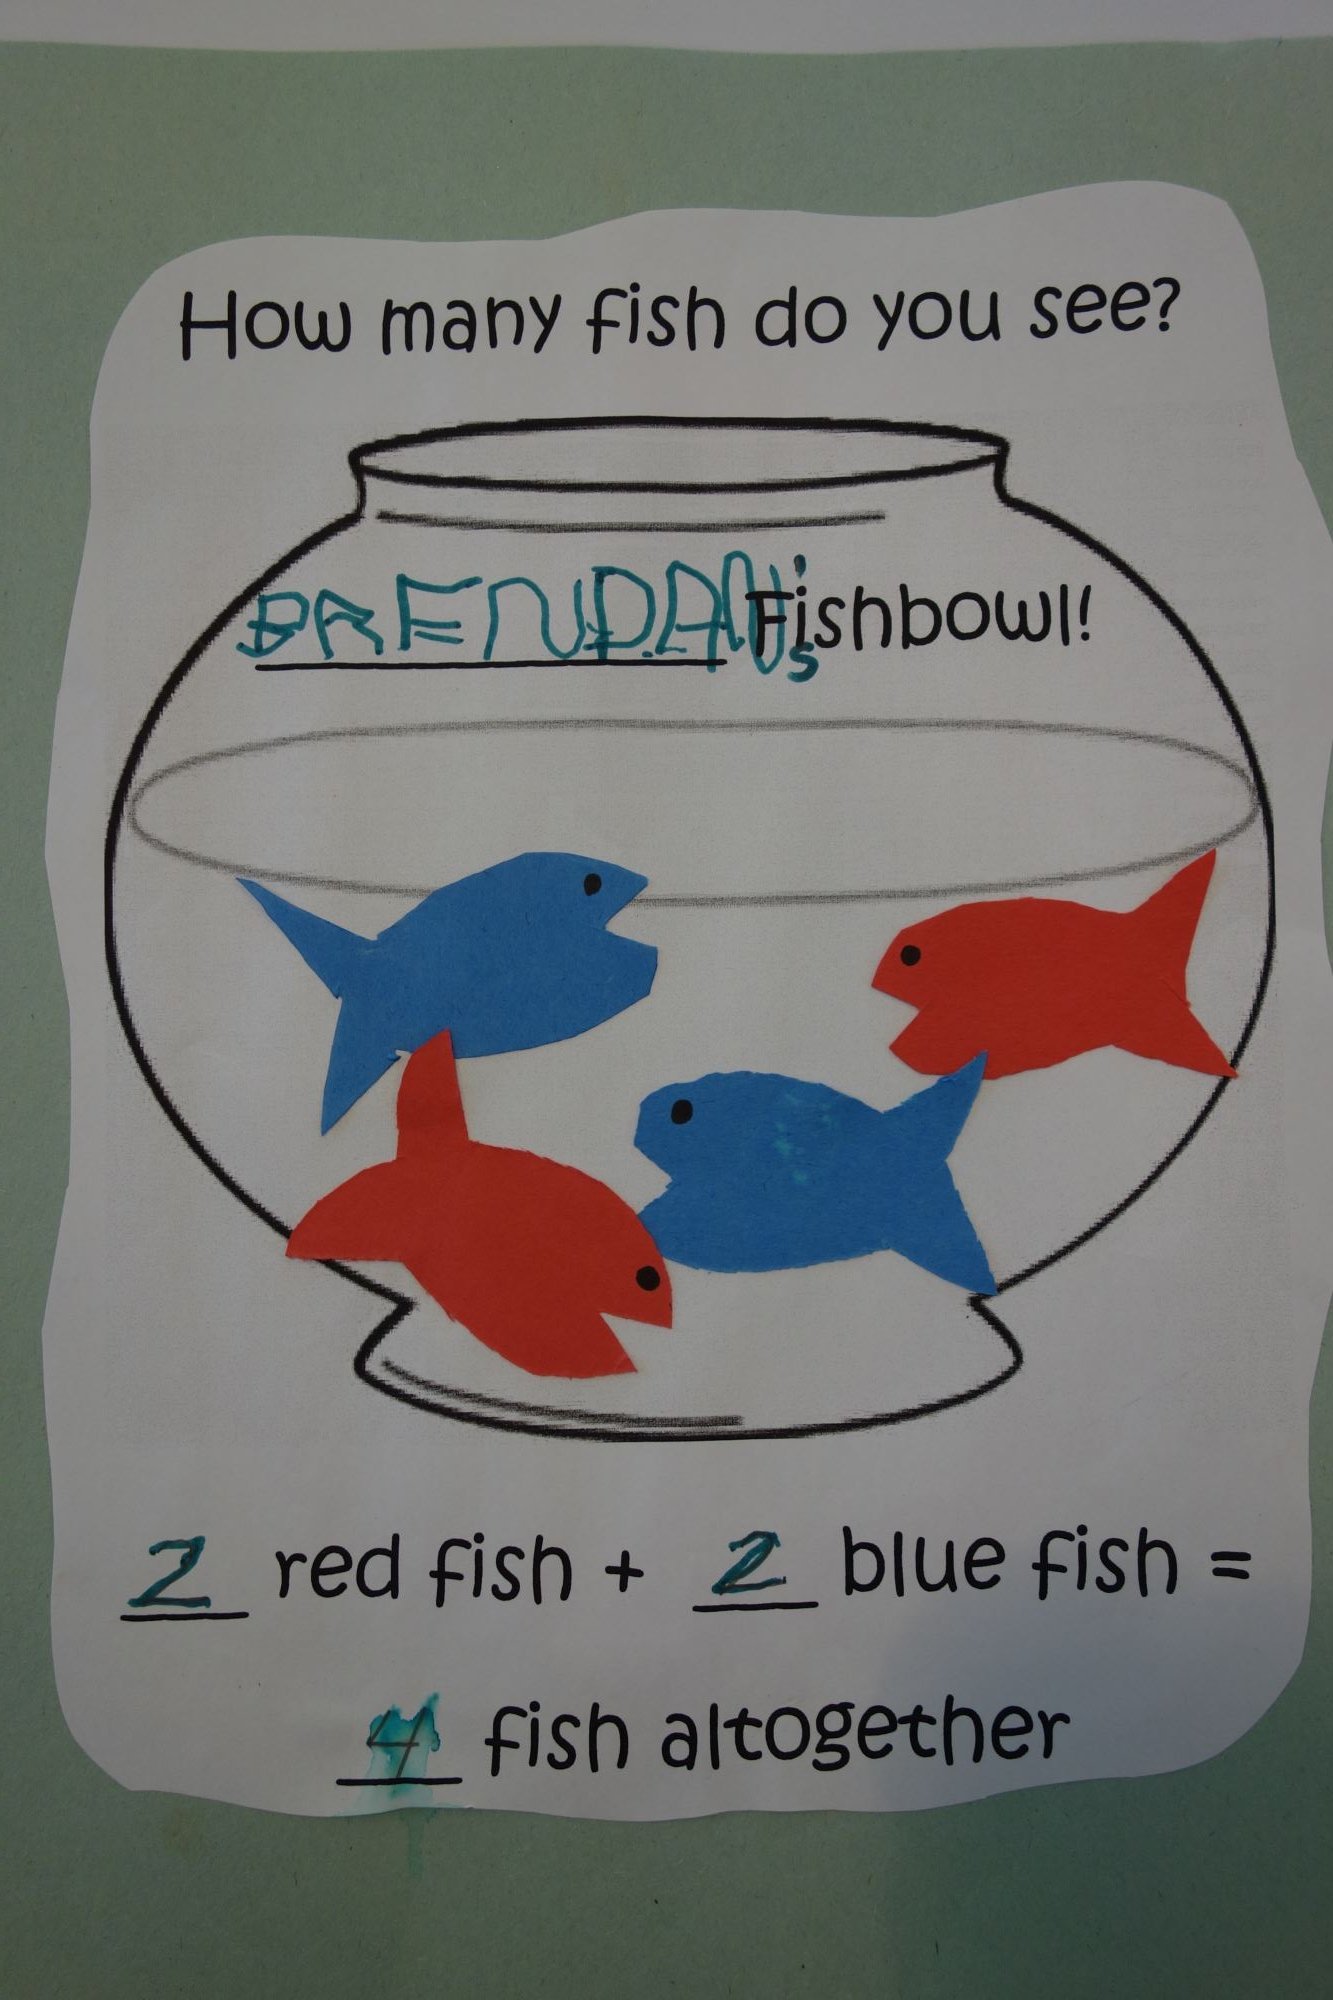 How many fish do you see?
BRENDAN's Fishbowl!
2 red fish + 2 blue fish =
4 fish altogether